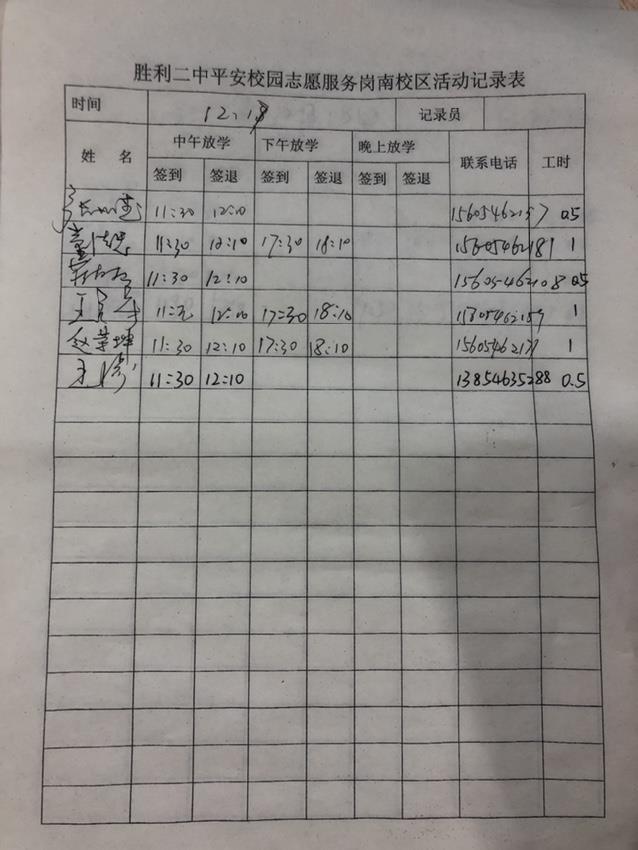 胜利二中平安校园志愿服务岗南校区活动记录表
时间 12.18 记录员
姓 名 中午放学 下午放学 晚上放学 联系电话 工时
签到 签退 签到 签退 签到 签退
11:30 12:10 0.5
11:30 12:10 17:30 18:10 15605462181 1
11:30 12:10 15605462108 0.5
12:10 17:30 18:10 1
赵荣坤 11:30 12:10 17:30 18:10 1
11:30 12:10 13854635288 0.5